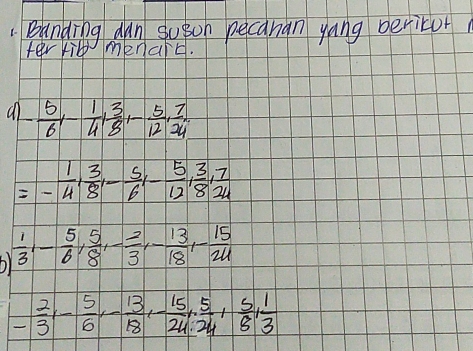 1. Banding dan susun pecahan yang berikut
tertib menaik.
a) -5/6, -1/4, 3/8, -5/12, 7/24
= -1/4, 3/8, -5/6, -5/12, 3/8, 7/24
b) 1/3, -5/6, 5/8, -2/3, -13/18, -15/24
-2/3, -5/6, -13/18, -15/24, 5/24, 5/8, 1/3